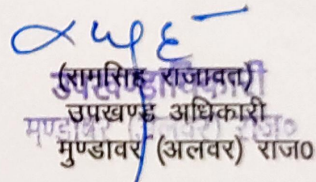 (रामसिंह राजावत)
उपखण्ड अधिकारी
मुण्डावर (अलवर) राज०